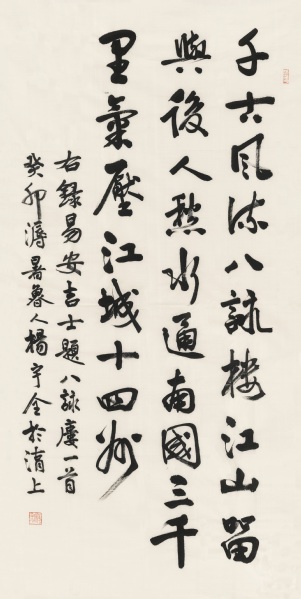 千古風流八詠樓江山留
與後人愁水通南國三千
里氣壓江城十四州
右錄易安居士題八詠樓一首
癸卯溽暑魯人楊宇全於渭上